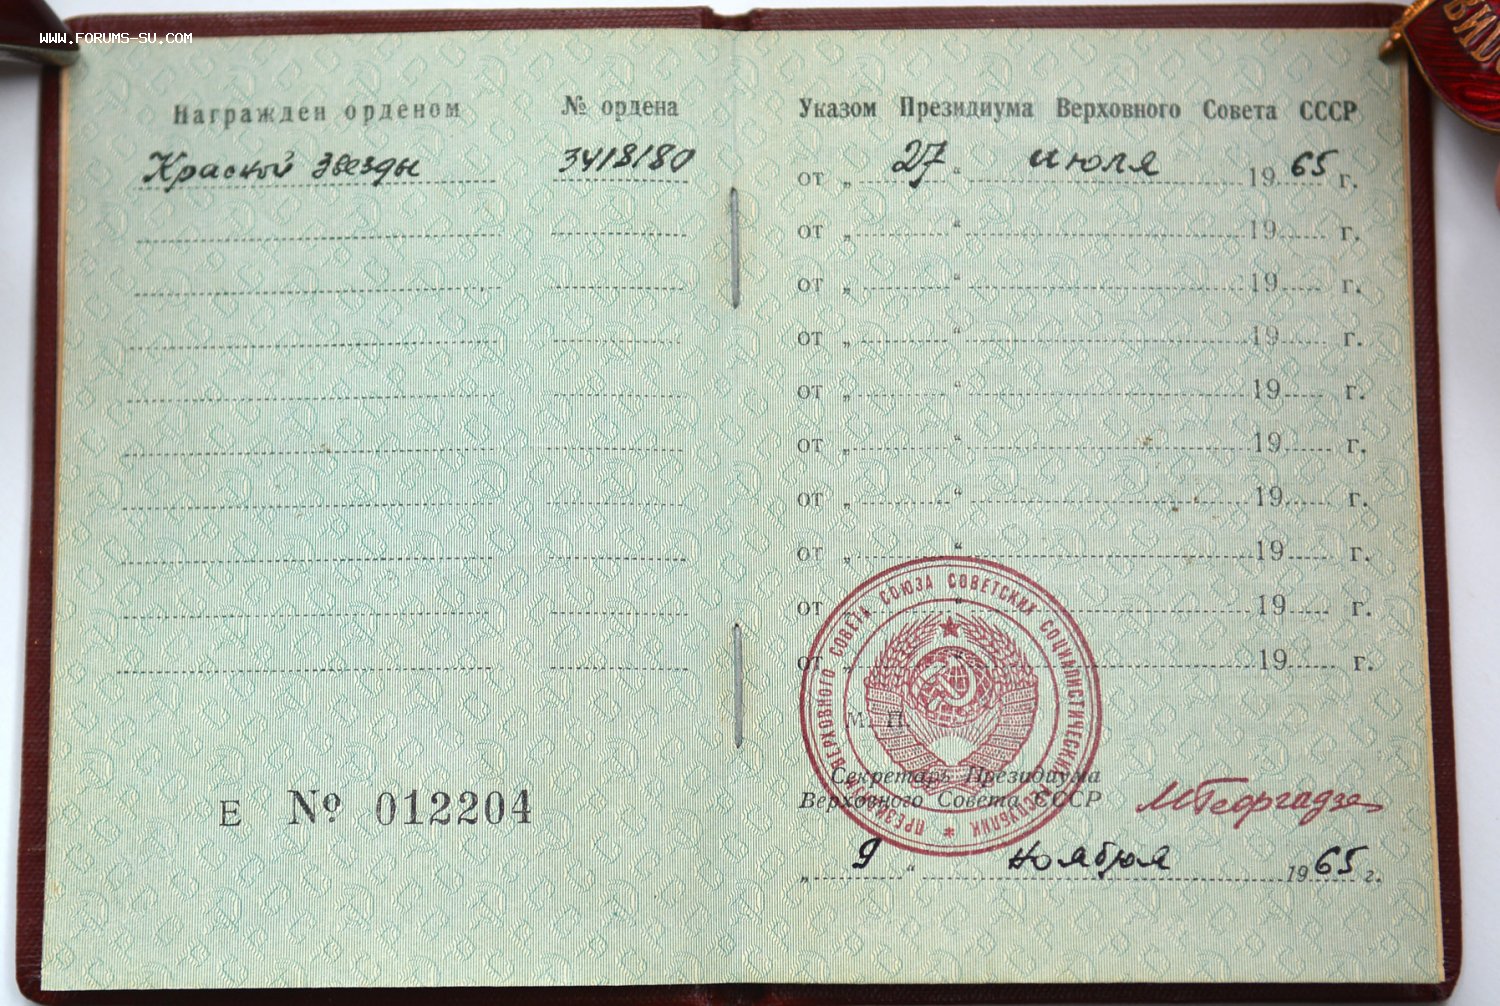 www.FORUMS-SU.COM
Награжден орденом № ордена
Красной Звезды 3418180
Указом Президиума Верховного Совета СССР
от „ 27 “ июля 19 65 г.
от „ “ 19 г.
от „ “ 19 г.
от „ “ 19 г.
от „ “ 19 г.
от „ “ 19 г.
от „ “ 19 г.
от „ “ 19 г.
от „ “ 19 г.
от „ “ 19 г.
ПРЕЗИДИУМ ВЕРХОВНОГО СОВЕТА СОЮЗА СОВЕТСКИХ СОЦИАЛИСТИЧЕСКИХ РЕСПУБЛИК
М. П.
Секретарь Президиума
Верховного Совета СССР МГеоргадзе
„ 9 “ ноября 19 65 г.
Е № 012204